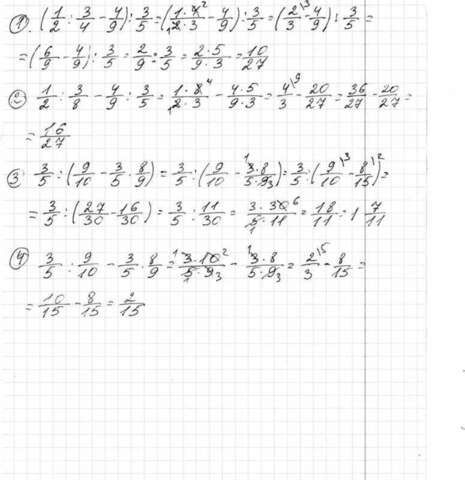 ① (1/2 : 3/4 − 4/9) : 3/5 = (1·4²/₁2·3 − 4/9) : 3/5 = (2/3\³ − 4/9) : 3/5 =
= (6/9 − 4/9) : 3/5 = 2/9 : 3/5 = 2·5/9·3 = 10/27
② 1/2 : 3/8 − 4/9 : 3/5 = 1·8⁴/₁2·3 − 4·5/9·3 = 4/3\⁹ − 20/27 = 36/27 − 20/27 =
= 16/27
3 3/5 : (9/10 − 3/5 · 8/9) = 3/5 : (9/10 − ¹3·8/5·9₃) = 3/5 : (9/10\³ − 8/15\²) =
= 3/5 : (27/30 − 16/30) = 3/5 : 11/30 = 3·30⁶/₁5·11 = 18/11 = 1 7/11
④ 3/5 : 9/10 − 3/5 · 8/9 = ¹3·10²/₁5·9₃ − ¹3·8/5·9₃ = 2/3\⁵ − 8/15 =
= 10/15 − 8/15 = 2/15